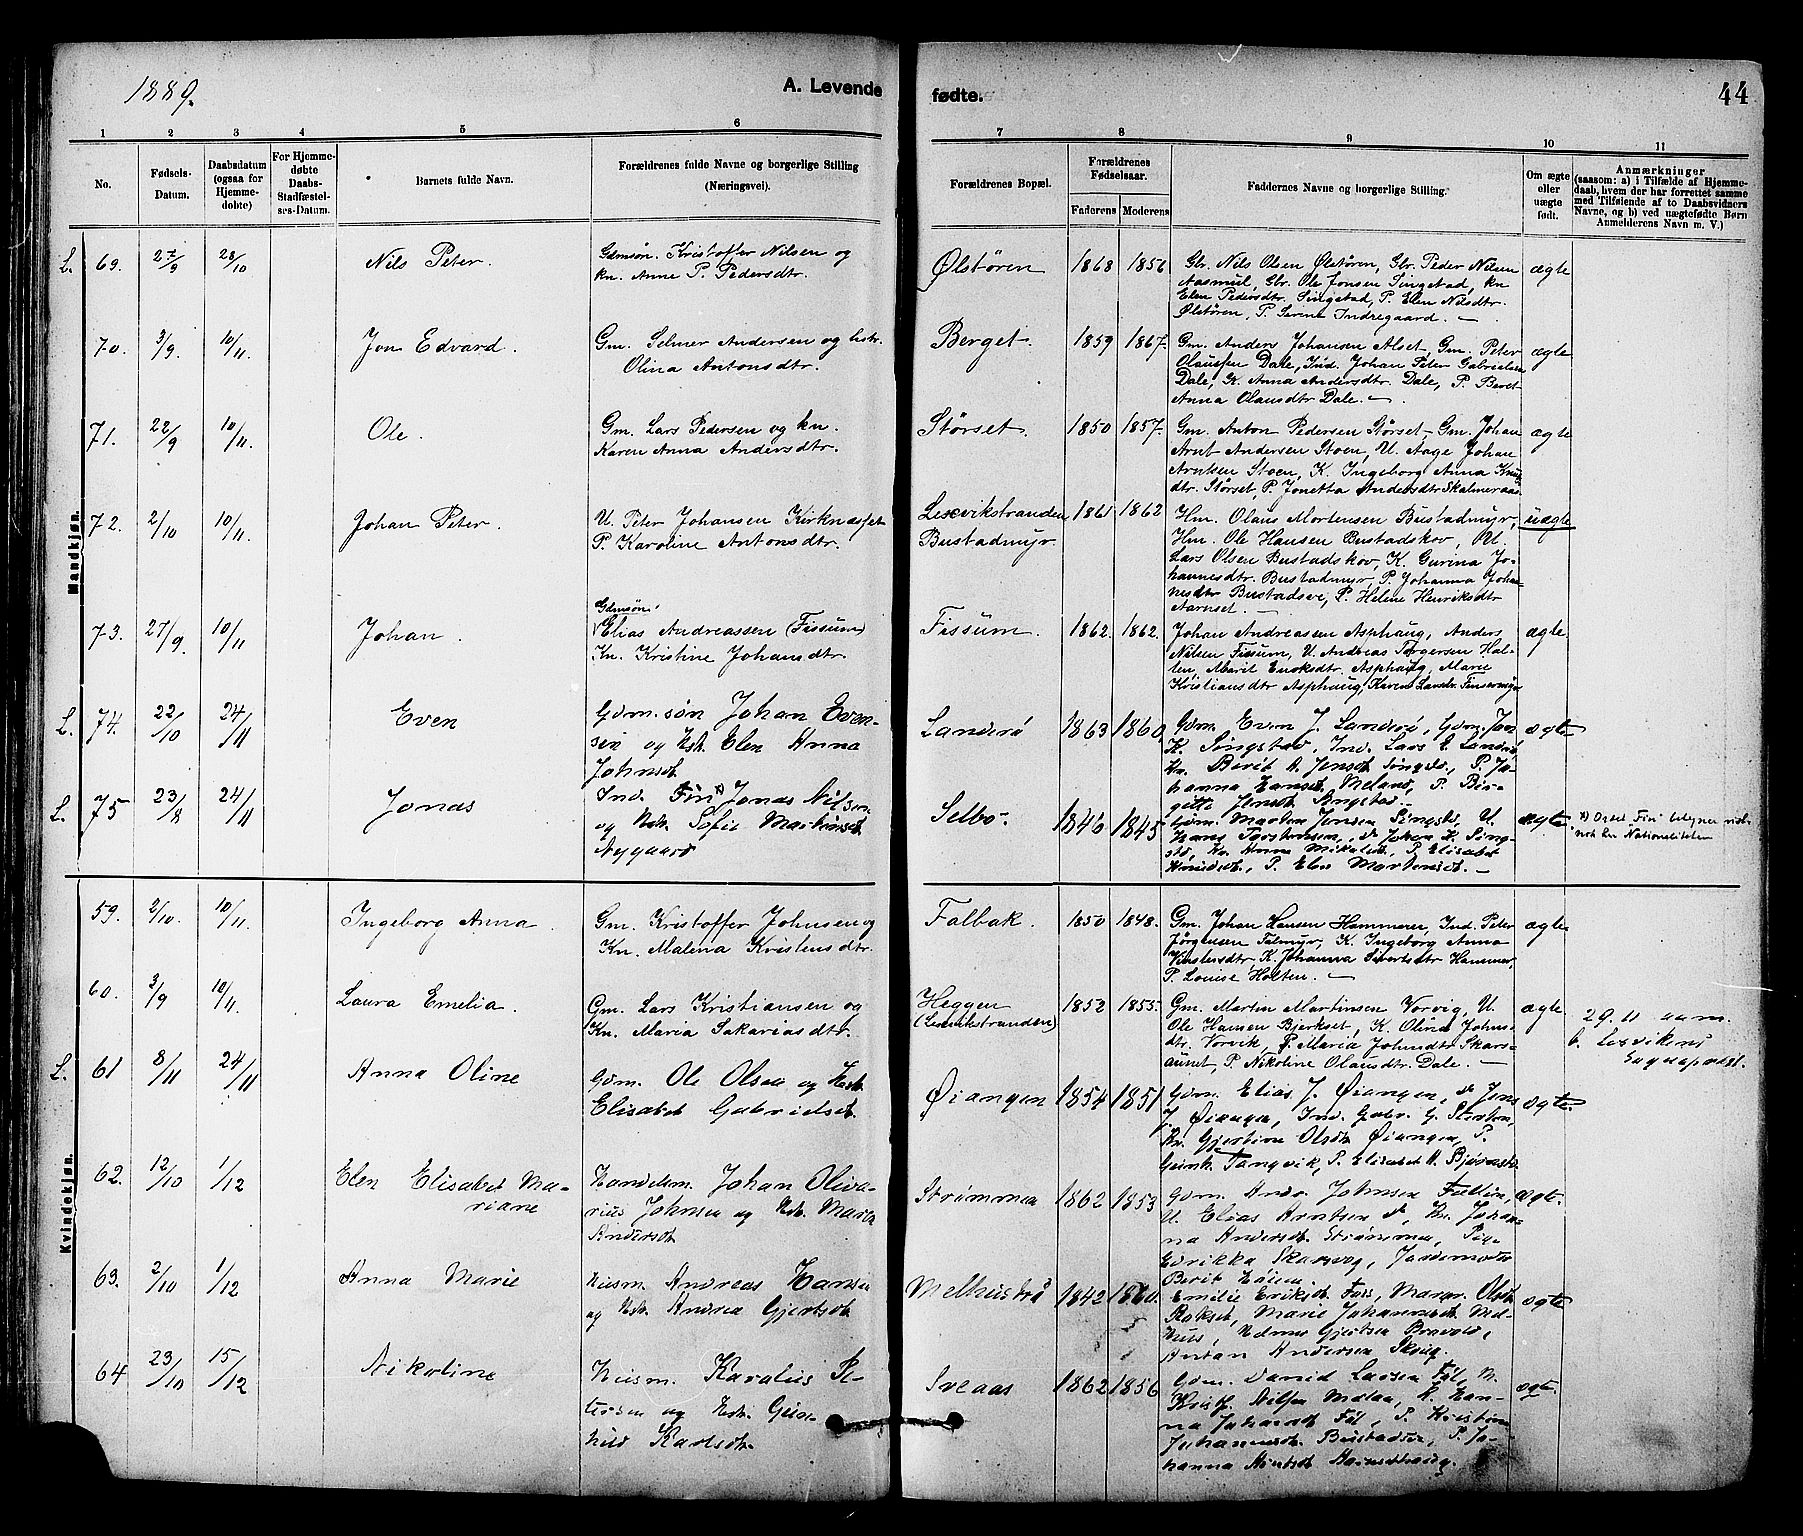 1889.
A. Levende
fødte.
44
1 2 3 4 5 6 7 8 9 10 11
No.
Fødsels-
Datum.
Daabsdatum
(ogsaa for
Hjemme-
døbte)
For Hjemme-
døbte
Daabs-
Stadfæstel-
ses-Datum.
Barnets fulde Navn.
Forældrenes fulde Navne og borgerlige Stilling
(Næringsvei).
Forældrenes Bopæl.
Forældrenes
Fødselsaar.
Faderens Moderens
Faddernes Navne og borgerlige Stilling.
Om ægte
eller
uægte
født.
Anmærkninger
(saasom: a) i Tilfælde af Hjemme-
daab, hvem der har forrettet samme
med Tilføiende af to Daabsvidners
Navne, og b) ved uægtefødte Børn
Anmelderens Navn m. V.)
Mandkjøn.
L. 69. 27/9 28/10 Nils Peter.
Gdmsøn. Kristoffer Nilsen og
kn. Anne P. Pedersdtr.
Ølstören 1868 1856
Gbr. Nils Olsen Ølstören, Gbr. Peder Nilsen
Aasmul, Gbr. Ole Jonsen Singstad, kn
Elen Pedersdtr. Singstad, P. Elen Nilsdtr.
Ølstören, P. Serine Indregaard. —
ægte
70. 3/9. 10/11. Jon Edvard.
Gm. Selmer Andersen og hstr.
Olina Antonsdtr.
Berget. 1859 1867.
Gm. Anders Johansen Alset, Gm. Peter
Olaussen Dale, Ind. Johan Peter Gabrielsen
Dale, K. Anna Andersdtr. Dale, P. Beret
Anna Olausdtr Dale. —
ægte
71. 22/9 10/11. Ole.
Gm. Lars Pedersen og kn.
Karen Anna Andersdtr.
Störset. 1850 1857.
Gm. Anton Pedersen Störset, Gm. Johan
Arnt Andersen Stoen, U. Aage Johan
Arntsen Stoen, K. Ingeborg Anna
dtr. Störset, P. Jonetta Andersdtr Skalmeraas
ægte
72. 2/10 10/11. Johan Peter.
U. Peter Johansen Kirknæsfet
P. Karoline Antonsdtr.
Lexvikstranden
Bustadmyr. 1861 1862
Hm. Olaus Mortensen Bustadmyr,
Hm. Ole Hansen Bustadskov, U.
Lars Olsen Bustadskov, K. Gurina Jo-
hannesdtr. Bustadmyr, P. Johanna Johan-
nesdtr Bustadsve, P. Helene Henriksdtr
Aarnset. —
uægte
73. 27/9. 10/11. Johan.
Gdmsön.
Elias Andreassen (Fissum)
Kn. Kristine Johansdtr.
Fissum. 1862. 1862.
Johan Andreassen Asphaug, Anders
Nilsen Fissum, U. Andreas Torgersen Hal-
ten, Marit Enoksdtr. Asphaug, Marie
Kristiansdtr Asphaug, Karen
ægte.
L. 74. 22/10 24/11 Even
Gdm.søn Johan Even-
sen og Hst. Elen Anna
Johnsdt.
Landrø 1863 1860.
Gdm. Even J. Landrø, Gdm. Jon
K. Singstad, Ind. Lars E. Landrø
Kn. Berit A. Jensdt Singstd., P. Jo-
hanna Hansdt Meland, P. Bir-
gitte Jensdt Singstad.
ægte
L. 75 23/8 24/11 Jonas
Ind. Fin x) Jonas Nilsen
og Hst. Sofie Martinsdt
Nygaard
Selbo. 1846 1845
Gdm. Morten Jonsen Singstd, U.
Hans Torstensen, do Johan K. Sing-
std, Kn Anne Mikalsdt, P. Elisabet
Knudsdt., P. Elen Martensdt. —
ægte
x) Ordet "Fin" betegner
nok her Nationaliteten
Kvindekjøn.
59. 2/10. 10/11. Ingeborg Anna.
Gm. Kristoffer Johnsen og
Kn. Malena Kristensdtr.
Falbak. 1850 1848.
Gm. Johan Larsen Hammeren, Ind. Peter
Jörgensen Falmyr, K. Ingeborg Anna
Kristensdtr, K. Johanna Sivertsdtr Hammer,
P. Louise Holten. —
ægte.
60. 3/9 10/11. Laura Emelia.
Gm. Lars Kristiansen og
Kn. Maria Sakariasdtr.
Heggen
(Lexvikstranden) 1852 1855.
Gm. Martin Martinsen Vorvig, U.
Ole Hansen Bjerkset, K. Olina Johns-
dtr. Vorvik, P. Maria Johnsdtr Skars-
aunet, P. Nikoline Olausdtr. Dale. —
ægte
29.11
L. 61 8/11 24/11 Anna Oline
Gdm. Ole Olsen og Hst.
Elisabet Gabrielsdt.
Øiangen 1854 1851.
Gdm. Elias J. Øiangen, do Jens
J. Øiangen, Ind. Gabr. G.
Kn. Gjertine Olsdt Øiangen, P.
Geinh. Tangvik, P. Elisabet A.
ægte.
62. 12/10 1/12 Elen Elisabet Ma-
riane
Handelsm. Johan Oliva-
rius Johnsen og Hst. Maren
Andersdt.
Strømmen 1862 1853
Gdm. Andr. Johnsen
U. Elias Arntsen do, Kn. Johan-
na Andersdt Strømmen, Pige
Edrikka Skarsvog, Jordemoder
Berit
ægte.
63. 2/10 1/12 Anna Marie
Husm. Andreas Hansen
og Hst. Andrea Gjertsdt.
Melhustrø 1842 1860.
Emilie Eriksdt Fos, Maren Olsdt
Rokset, Marie Johannesdt Mel-
huus, Hedmer Gjertsen
Anton Andersen Skaug.
ægte
64 23/10 15/12 Nikoline
Husm. Karolius Pe-
tersen og Hst. Gun-
hild Karlsdt.
Sveaas 1862 1856
Gdm. David Larsen Fol, U.
Krist. Nilsen K. Han-
na Johansdt Fol, P. Kristine
Johannesdt. Bustadsen, P. Jo-
hanna Arntsdt
ægte.